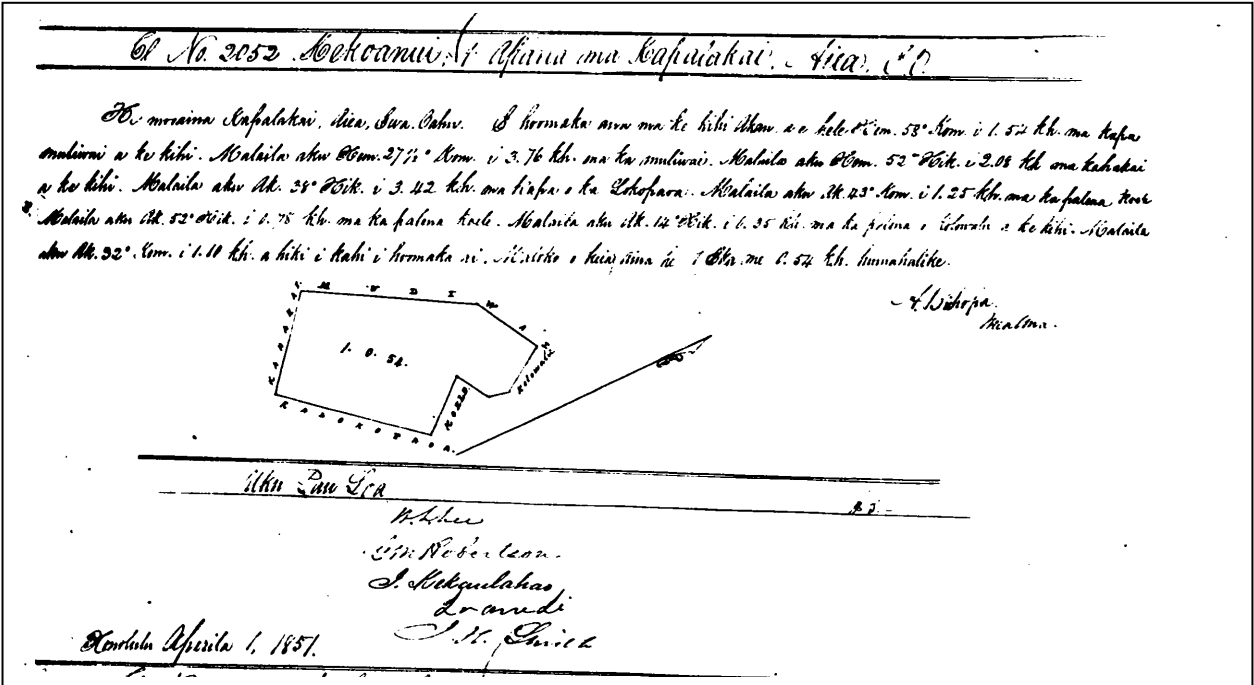 Cl No. 2052 Mekoanui. 1 Apana ma Kapalakai. Aiea. E. O.
He moraina Kapalakai, Aiea, Ewa. Oahu. E hoomaka ana ma ke kihi Akau a e hele Hem. 58° Kom. i 1.52 kh. ma kapa
muliwai a ke kihi. Malaila aku Hem. 27½° Kom. i 3.76 kh. ma ka muliwai. Malaila aku Hem. 52° Hik. i 2.08 kh ma kahakai
a ke kihi. Malaila aku Ak. 38° Hik. i 3.42 kh. ma kapa o ka Lokopaoa. Malaila aku Ak. 43° Kom. i 1.25 kh. ma ka palena Koele
Malaila aku Ak. 52° Hik. i 0.78 kh. ma ka palena Koele. Malaila aku Ak. 14° Hik. i 0.35 kh. ma ka palena o Kolowalu a ke kihi. Malaila
aku Ak. 32° Kom. i 1.10 kh. a hiki i kahi i hoomaka ai. Maloko o keia aina he 1 Eka me 0.54 kh. huinahalike.
A. Bishopa.
Mea Ana.
MULIWAI
KAHAKAI
1. 0. 54.
Kolowalu
KOELE
KALOKOPAOA.
Uku Pau Loa
$5.-
W. L. Lee
G M Robertson.
J. Kekaulahao
J. H. Smith
Honolulu Aperila 1, 1851.